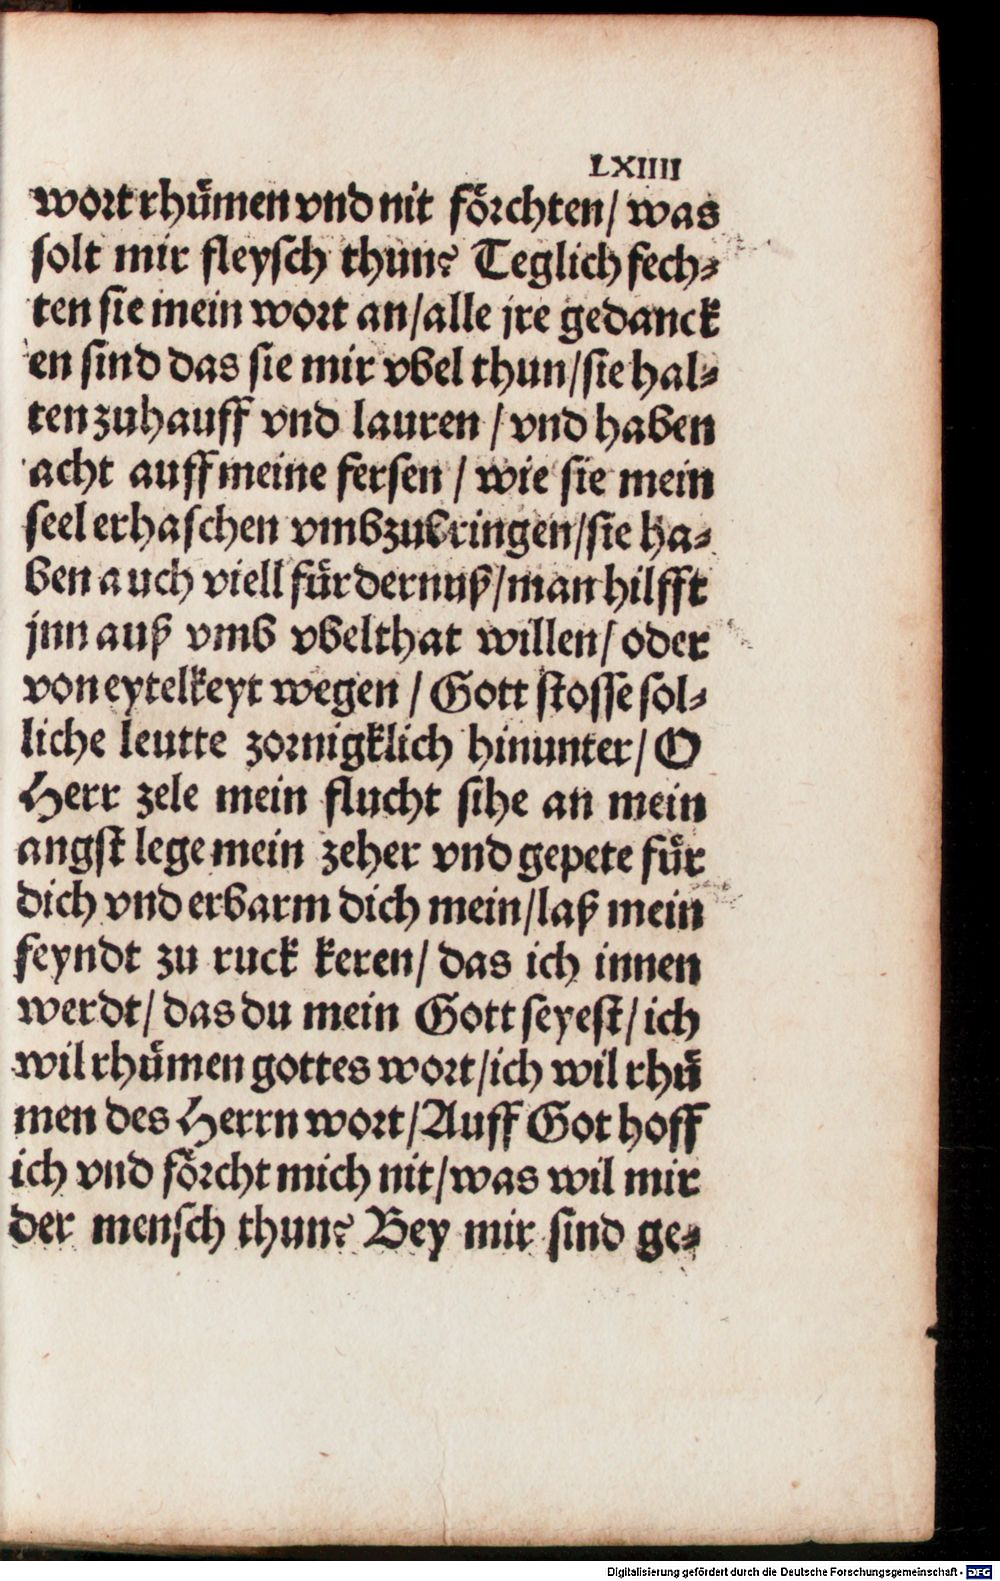 LXIIII
wort rhuͤmen vnd nit foͤrchten/ was
solt mir fleysch thun? Teglich fech⸗
ten sie mein wort an/alle jre gedanck
en sind das sie mir vbel thun/sie hal⸗
ten zuhauff vnd lauren / vnd haben
acht auff meine fersen / wie sie mein
seel erhaschen vmbzubringen/sie ha⸗
ben auch viell fuͤrdernuß/man hilfft
jnn auß vmb vbelthat willen/ oder
von eytelkeyt wegen / Gott stosse sol⸗
liche leutte zornigklich hinunter/ O
Herr zele mein flucht sihe an mein
angst lege mein zeher vnd gepete fuͤr
dich vnd erbarm dich mein/laß mein
feyndt zu ruck keren/ das ich innen
werdt/ das du mein Gott seyest/ ich
wil rhuͤmen gottes wort/ich wil rhuͤ
men des Herrn wort/Auff Got hoff
ich vnd foͤrcht mich nit/was wil mir
der mensch thun? Bey mir sind ge⸗
Digitalisierung gefördert durch die Deutsche Forschungsgemeinschaft - DFG